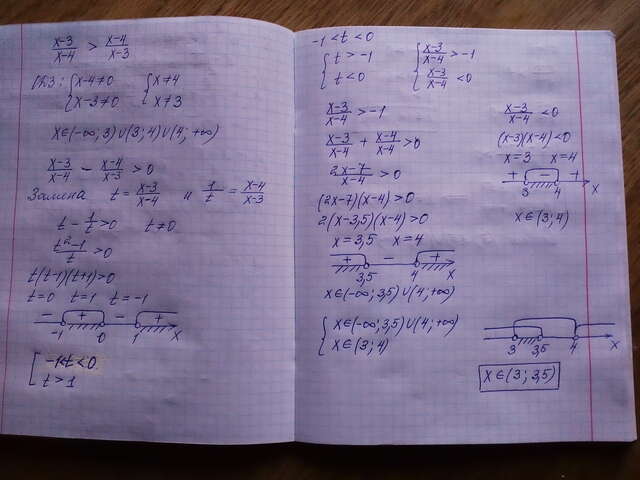 x-3/x-4 > x-4/x-3
ОДЗ: { x-4≠0 { x≠4
x-3≠0 x≠3
x∈(-∞; 3)∪(3; 4)∪(4; +∞)
x-3/x-4 - x-4/x-3 > 0
Замена t = x-3/x-4 и 1/t = x-4/x-3
t - 1/t > 0 t≠0
t²-1/t > 0
t(t-1)(t+1)>0
t=0 t=1 t=-1
- + - +
-1 0 1 x
[ -1<t<0
t>1
-1<t<0
{ t>-1 { x-3/x-4 > -1
t<0 x-3/x-4 < 0
x-3/x-4 > -1
x-3/x-4 + x-4/x-4 > 0
2x-7/x-4 > 0
(2x-7)(x-4)>0
2(x-3,5)(x-4)>0
x=3,5 x=4
+ - +
3,5 4 x
x∈(-∞; 3,5)∪(4; +∞)
x-3/x-4 < 0
(x-3)(x-4)<0
x=3 x=4
+ - +
3 4 x
x∈(3; 4)
{ x∈(-∞; 3,5)∪(4; +∞)
x∈(3; 4)
3 3,5 4 x
x∈(3; 3,5)